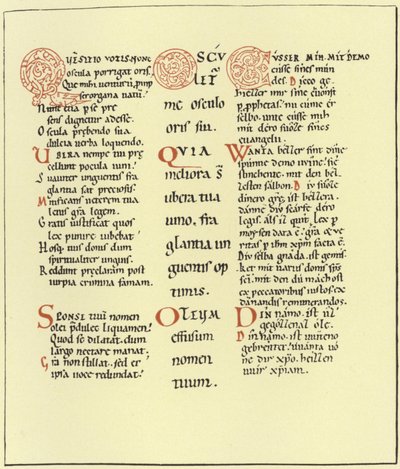 QVEM SITIO VOTIS NUNC
oscula porrigat oris.
Que mihi venturum promp
serorgana vatum.
Nunc etiam per se pre
sens dignetur adesse.
Oscula prebendo sua
dulcia verba loquendo.
Ubera nempe tui pre
cellunt pocula vini.
Svaviter unguentis fra
glantia sat preciosis.
Mitificans veterem tua
lenis gra legem.
Gratis iustificat quos
lex punire iubebat.
Hosq; tuis donis dum
spiritualiter unguis.
Reddunt preclaram post
turpia crimina famam.
Sponse tuum nomen
olei pdulce liquamen.
Quod se dilatat, dum
largo nectare manat.
Gra non stillat, sed er
ipsa voce redundat.
OSCV
LET
me osculo
oris sui.
QVIA
meliora s
ubera tua
vino, fra
glantia un
guentis op
timis.
OLEUM
effusum
nomen
tuum.
CVSSER MIH. MIT DEMO
cusse sines mun
des. Dicco ge
hiezzer mir sine cuonft
p pphetas. nu cume er
selbo. unte cusse mih
mit dero suoze sines
euangelii.
WANTA bezzer sint dine
spunne demo uvine. sie
stinchente. mit den bez
zesten salbon. Div suoze
dinero gra, ist bezzera.
danne div scarfe dero
legis. als iz quit. lex p
moysen data e. gra &amp; ve
ritas p ihm xpm facta e.
Div selba gnada. ist gemis
ket mit variis donis sps
sci. mit den du machost
ex peccatoribus iustos. ex
damnandis remunerandos.
DIN namo. ist uz
gegozzenaz ole.
Din namo. ist uuiteno
gebreitet. uuanta vo
ne dir xpo. heizzen
uuir xpiani.